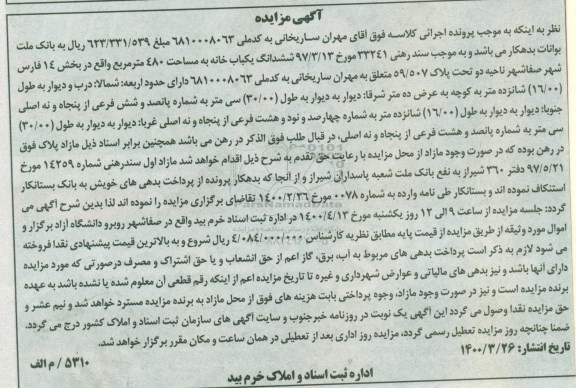 آگهی مزایده
نظر به اینکه به موجب پرونده اجرائی کلاسه فوق آقای مهران ساریخانی به کدملی ۶۸۱۰۰۰۸۰۶۳ مبلغ ۶۲۳/۳۳۱/۵۳۹ ریال به بانک ملت
بوانات بدهکار می باشد و به موجب سند رهنی ۳۳۲۴۱ مورخ ۹۷/۳/۱۳ ششدانگ یکباب خانه به مساحت ۴۸۰ مترمربع واقع در بخش ۱۴ فارس
شهر صفاشهر ناحیه دو تحت پلاک ۵۹/۵۰۷ متعلق به مهران ساریخانی به کدملی ۶۸۱۰۰۰۸۰۶۳ دارای حدود اربعه: شمالا: درب و دیوار به طول
(۱۶/۰۰) شانزده متر به کوچه به عرض ده متر شرقا: دیوار به دیوار به طول (۳۰/۰۰) سی متر به شماره پانصد و شش فرعی از پنجاه و نه اصلی
جنوبا: دیوار به دیوار به طول (۱۶/۰۰) شانزده متر به شماره چهارصد و نود و هشت فرعی از پنجاه و نه اصلی غربا: دیوار به دیوار به طول (۳۰/۰۰)
سی متر به شماره پانصد و هشت فرعی از پنجاه و نه اصلی، در قبال طلب فوق الذکر در رهن می باشد همچنین برابر اسناد ذیل مازاد پلاک فوق
در رهن بوده که در صورت وجود مازاد از محل مزایده با رعایت حق تقدم به شرح ذیل اقدام خواهد شد مازاد اول سندرهنی شماره ۱۴۲۵۹ مورخ
۹۷/۵/۲۱ دفتر ۳۶۰ شیراز به نفع بانک ملت شعبه پاسداران شیراز و از آنجا که بدهکار پرونده از پرداخت بدهی های خویش به بانک بستانکار
استنکاف نموده اند و بستانکار طی نامه وارده به شماره ۰۰۷۸ مورخ ۱۴۰۰/۲/۲۶ تقاضای برگزاری مزایده را نموده اند لذا بدین شرح آگهی می
گردد: جلسه مزایده از ساعت ۹ الی ۱۲ روز یکشنبه مورخ ۱۴۰۰/۴/۱۳ در اداره ثبت اسناد خرم بید واقع در صفاشهر روبرو دانشگاه آزاد برگزار و
اموال مورد وثیقه از طریق مزایده از قیمت پایه مطابق نظریه کارشناس ۴/۰۸۴/۰۰۰/۰۰۰ ریال شروع و به بالاترین قیمت پیشنهادی نقدا فروخته
می شود لازم به ذکر است پرداخت بدهی های مربوط به آب، برق، گاز اعم از حق انشعاب و یا حق اشتراک و مصرف درصورتی که مورد مزایده
دارای آنها باشد و نیز بدهی های مالیاتی و عوارض شهرداری و غیره تا تاریخ مزایده اعم از اینکه رقم قطعی آن معلوم شده یا نشده باشد به عهده
برنده مزایده است و نیز در صورت وجود مازاد، وجوه پرداختی بابت هزینه های فوق از محل مازاد به برنده مزایده مسترد خواهد شد و نیم عشر و
حق مزایده نقدا وصول می گردد این آگهی یک نوبت در روزنامه خبرجنوب و سایت آگهی های سازمان ثبت اسناد و املاک کشور درج می گردد.
ضمنا چنانچه روز مزایده تعطیل رسمی گردد، مزایده روز اداری بعد از تعطیلی در همان ساعت و مکان مقرر برگزار خواهد شد.
تاریخ انتشار: ۱۴۰۰/۳/۲۶
۵۳۱۰/م الف
اداره ثبت اسناد و املاک خرم بید